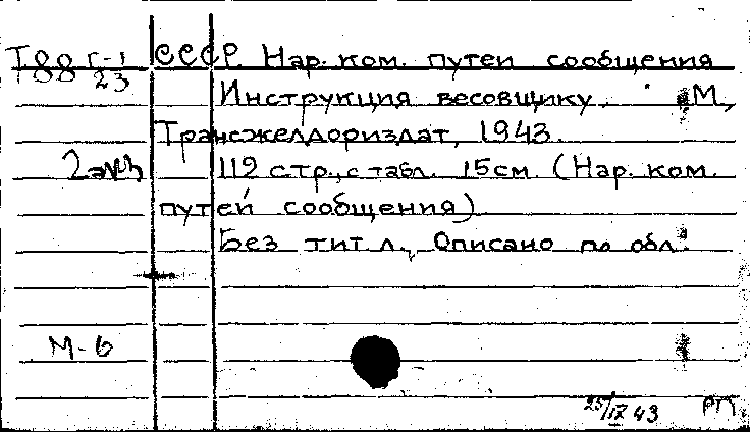 Т88 Г-1 СССР. Нар. ком. путей сообщения
23
Инструкция весовщику. М.,
Трансжелдориздат, 1943.
2 экз 112 стр., с табл. 15 см. (Нар. ком.
путей сообщения)
Без тит. л., Описано по обл.
М-6
25/IX 43 РП